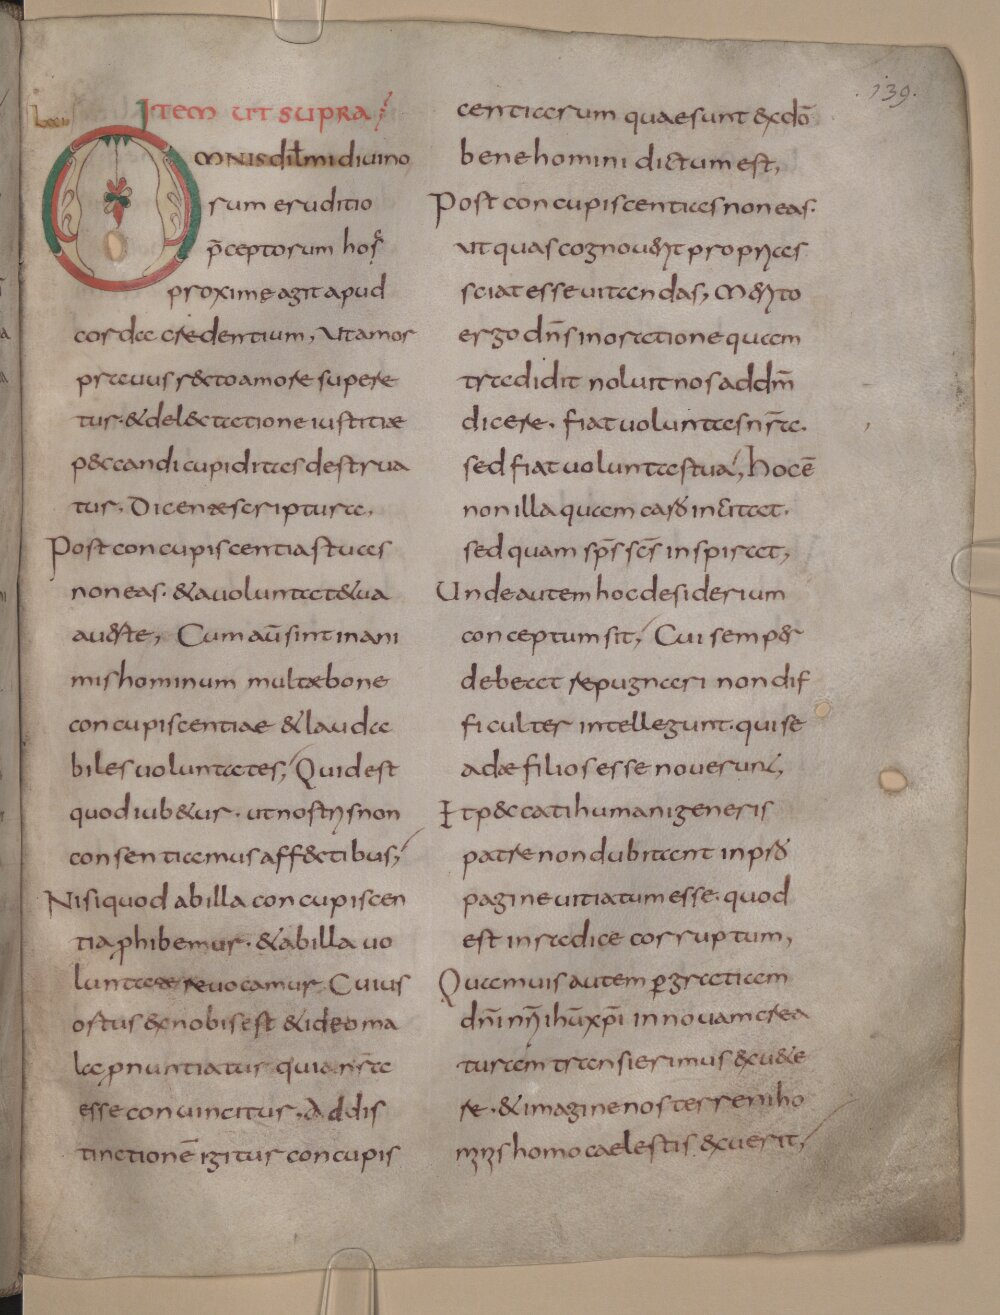 139.
Item ut supra
Omnis dil̄mi divino
rum eruditio
p̄ceptorum hoſ
proxime agit apud
corda credentium, ut amor
pravus recto amore supere
tur. & delectatione iustitiæ
peccandi cupiditas destrua
tur. Dicente scriptura,
Post concupiscentias tuas
non eas. & a voluntate tua
averte, Cum aū sint in ani
mis hominum multæ bone
concupiscentiae & lauda
biles voluntates, Quid est
quod iubetur. ut nostris non
consentiamus affectibus,
Nisi quod ab illa concupiscen
tia phibemur. & ab illa vo
luntate revocamur. Cuius
ortus ex nobis est & ideo ma
la pnuntiatur quia nr̄a
esse convincitur. Ad dis
tinctionē igitur concupis
centiarum quae sunt ex dō
bene homini dictum est,
Post concupiscentias non eas.
ut quas cognoverit proprias
sciat esse vitandas, Merito
ergo dn̄s in oratione quam
tradidit noluit nos ad dm̄
dicere. fiat voluntas nr̄a.
sed fiat voluntas tua, hoc ē
non illa quam caro incitat.
sed quam sp̄s sc̄s inspirat,
Unde autem hoc desiderium
conceptum sit, Cui semper
debeat repugnari non dif
ficulter intellegunt. qui se
adæ filios esse noverunt,
Et peccati humani generis
patre non dubitant in pro
pagine vitiatum esse. quod
est in radice corruptum,
Quamvis autem per gratiam
dn̄i nr̄i ih̄u xp̄i in novam crea
turam transierimus & vete
re. & imagine nos terreni ho
minis homo caelestis exuerit,